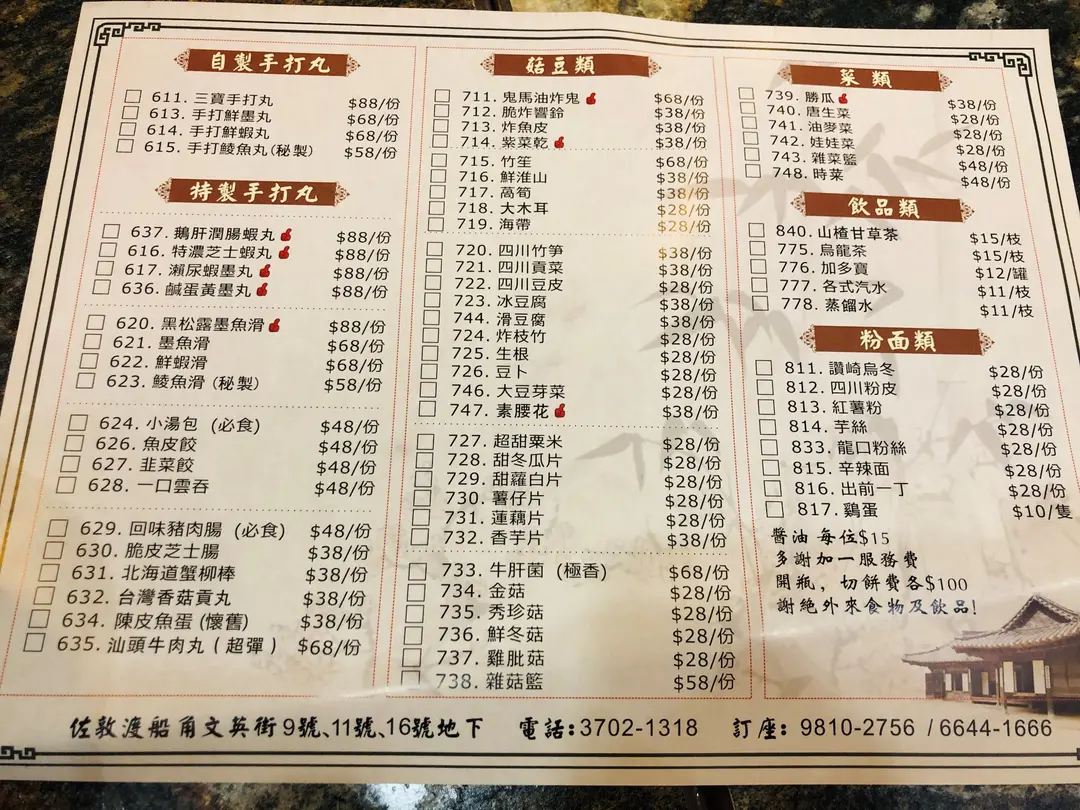 自製手打丸
611. 三寶手打丸 $88/份
613. 手打鮮墨丸 $68/份
614. 手打鮮蝦丸 $68/份
615. 手打鯪魚丸(秘製) $58/份
特製手打丸
637. 鵝肝潤腸蝦丸 $88/份
616. 特濃芝士蝦丸 $88/份
617. 瀨尿蝦墨丸 $88/份
636. 鹹蛋黃墨丸 $88/份
620. 黑松露墨魚滑 $88/份
621. 墨魚滑 $68/份
622. 鮮蝦滑 $68/份
623. 鯪魚滑 (秘製) $58/份
624. 小湯包 (必食) $48/份
626. 魚皮餃 $48/份
627. 韭菜餃 $48/份
628. 一口雲吞 $48/份
629. 回味豬肉腸 (必食) $48/份
630. 脆皮芝士腸 $38/份
631. 北海道蟹柳棒 $38/份
632. 台灣香菇貢丸 $38/份
634. 陳皮魚蛋 (懷舊) $38/份
635. 汕頭牛肉丸 ( 超彈 ) $68/份
菇豆類
711. 鬼馬油炸鬼 $68/份
712. 脆炸響鈴 $38/份
713. 炸魚皮 $38/份
714. 紫菜乾 $38/份
715. 竹笙 $68/份
716. 鮮淮山 $38/份
717. 萵筍 $38/份
718. 大木耳 $28/份
719. 海帶 $28/份
720. 四川竹筍 $38/份
721. 四川貢菜 $38/份
722. 四川豆皮 $28/份
723. 冰豆腐 $38/份
744. 滑豆腐 $38/份
724. 炸枝竹 $28/份
725. 生根 $28/份
726. 豆卜 $28/份
746. 大豆芽菜 $28/份
747. 素腰花 $38/份
727. 超甜粟米 $28/份
728. 甜冬瓜片 $28/份
729. 甜蘿白片 $28/份
730. 薯仔片 $28/份
731. 蓮藕片 $28/份
732. 香芋片 $38/份
733. 牛肝菌 (極香) $68/份
734. 金菇 $28/份
735. 秀珍菇 $28/份
736. 鮮冬菇 $28/份
737. 雞肶菇 $28/份
738. 雜菇籃 $58/份
菜類
739. 勝瓜 $38/份
740. 唐生菜 $28/份
741. 油麥菜 $28/份
742. 娃娃菜 $28/份
743. 雜菜籃 $48/份
748. 時菜 $48/份
飲品類
840. 山楂甘草茶 $15/枝
775. 烏龍茶 $15/枝
776. 加多寶 $12/罐
777. 各式汽水 $11/枝
778. 蒸餾水 $11/枝
粉面類
811. 讚崎烏冬 $28/份
812. 四川粉皮 $28/份
813. 紅薯粉 $28/份
814. 芋絲 $28/份
833. 龍口粉絲 $28/份
815. 辛辣面 $28/份
816. 出前一丁 $28/份
817. 鷄蛋 $10/隻
醬油 每位$15
多謝加一服務費
開瓶，切餅費各$100
謝絕外來食物及飲品!
佐敦渡船角文英街9號、11號、16號地下 電話:3702-1318 訂座: 9810-2756 / 6644-1666